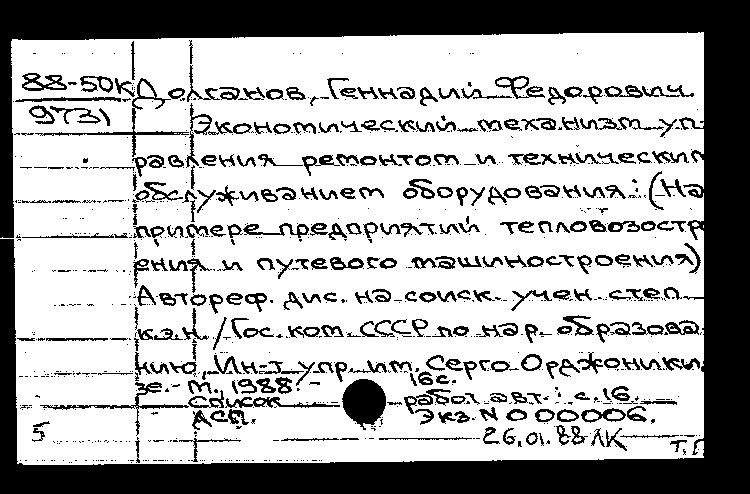 88-50К Долганов, Геннадий Федорович.
9731 Экономический механизм уп-
равления ремонтом и техническим
обслуживанием оборудования: (На
примере предприятий тепловозостро
ения и путевого машиностроения)
Автореф. дис. на соиск. учен. степ.
к.э.н. / Гос. ком. СССР по нар. образова
нию, Ин-т упр. им. Серго Орджоники
зе.- М., 1988. - 16с.
Список работ авт.: с.16.
АСП. Экз. N 000006.
5 26.01.88 ЛК